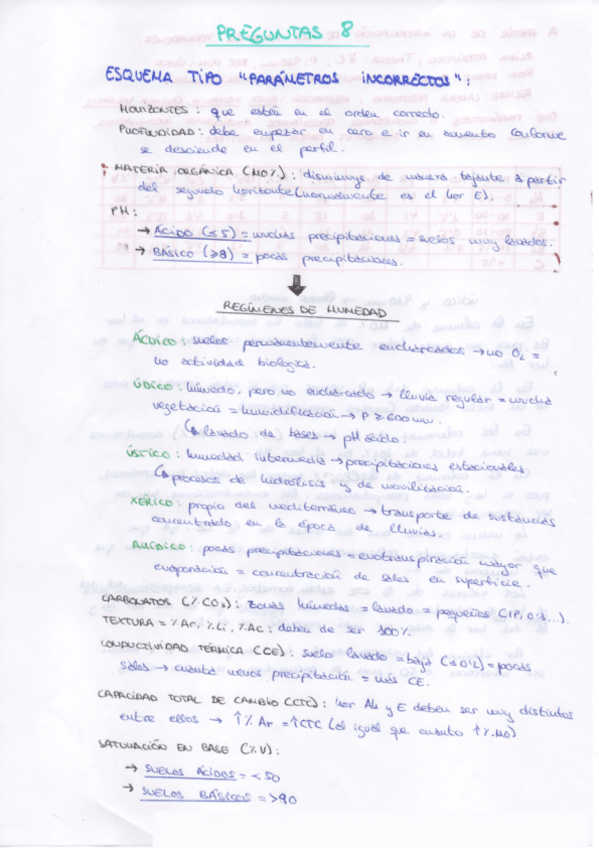 PREGUNTAS 8
ESQUEMA TIPO "PARÁMETROS INCORRECTOS":
HORIZONTES: que estén en el orden correcto.
PROFUNDIDAD: debe empezar en cero e ir en aumento conforme
se desciende en el perfil.
MATERIA ORGÁNICA (MO%): disminuye de manera tajante a partir
del segundo horizonte (normalmente es el hor E).
PH:
→ ÁCIDO (≤5) = muchas precipitaciones = suelos muy lavados.
→ BÁSICO (≥8) = pocas precipitaciones.
REGÍMENES DE HUMEDAD
ÁCUICO: suelos permanentemente encharcados → no O₂ =
no actividad biológica.
ÚDICO: húmedo, pero no encharcado → lluvia regular = mucha
vegetación = humidificación → P ≥ 600 mm.
↳ lavado de bases → pH ácido.
ÚSTICO: humedad intermedia → precipitaciones estacionales
↳ procesos de hidrólisis y de movilización.
XERICO: propio del mediterráneo → transporte de sustancias
concentrado en la época de lluvias.
ARÍDICO: pocas precipitaciones = evotranspiración mayor que
evaporación = concentración de sales en superficie.
CARBONATOS (%CO₃): zonas húmedas = lavado = pequeños (IP, 0'1...).
TEXTURA = %Ar, %Li, %Ac: deben de ser 100%.
CONDUCTIVIDAD TÉRMICA (CE): suelo lavado = baja (≤0'2) = pocas
sales → cuanta menos precipitación = más CE.
CAPACIDAD TOTAL DE CAMBIO (CTC): hor Ah y E deben ser muy distintos
entre ellos → ↑% Ar = ↑CTC (al igual que cuanto ↑%MO)
SATURACIÓN EN BASE (%V):
→ SUELOS ÁCIDOS = <50
→ SUELOS BÁSICOS = >90